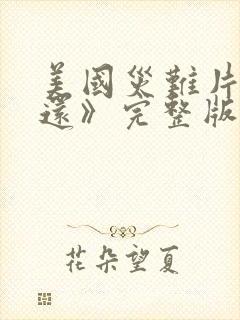 美國災難片
還》完整版
花朵望夏